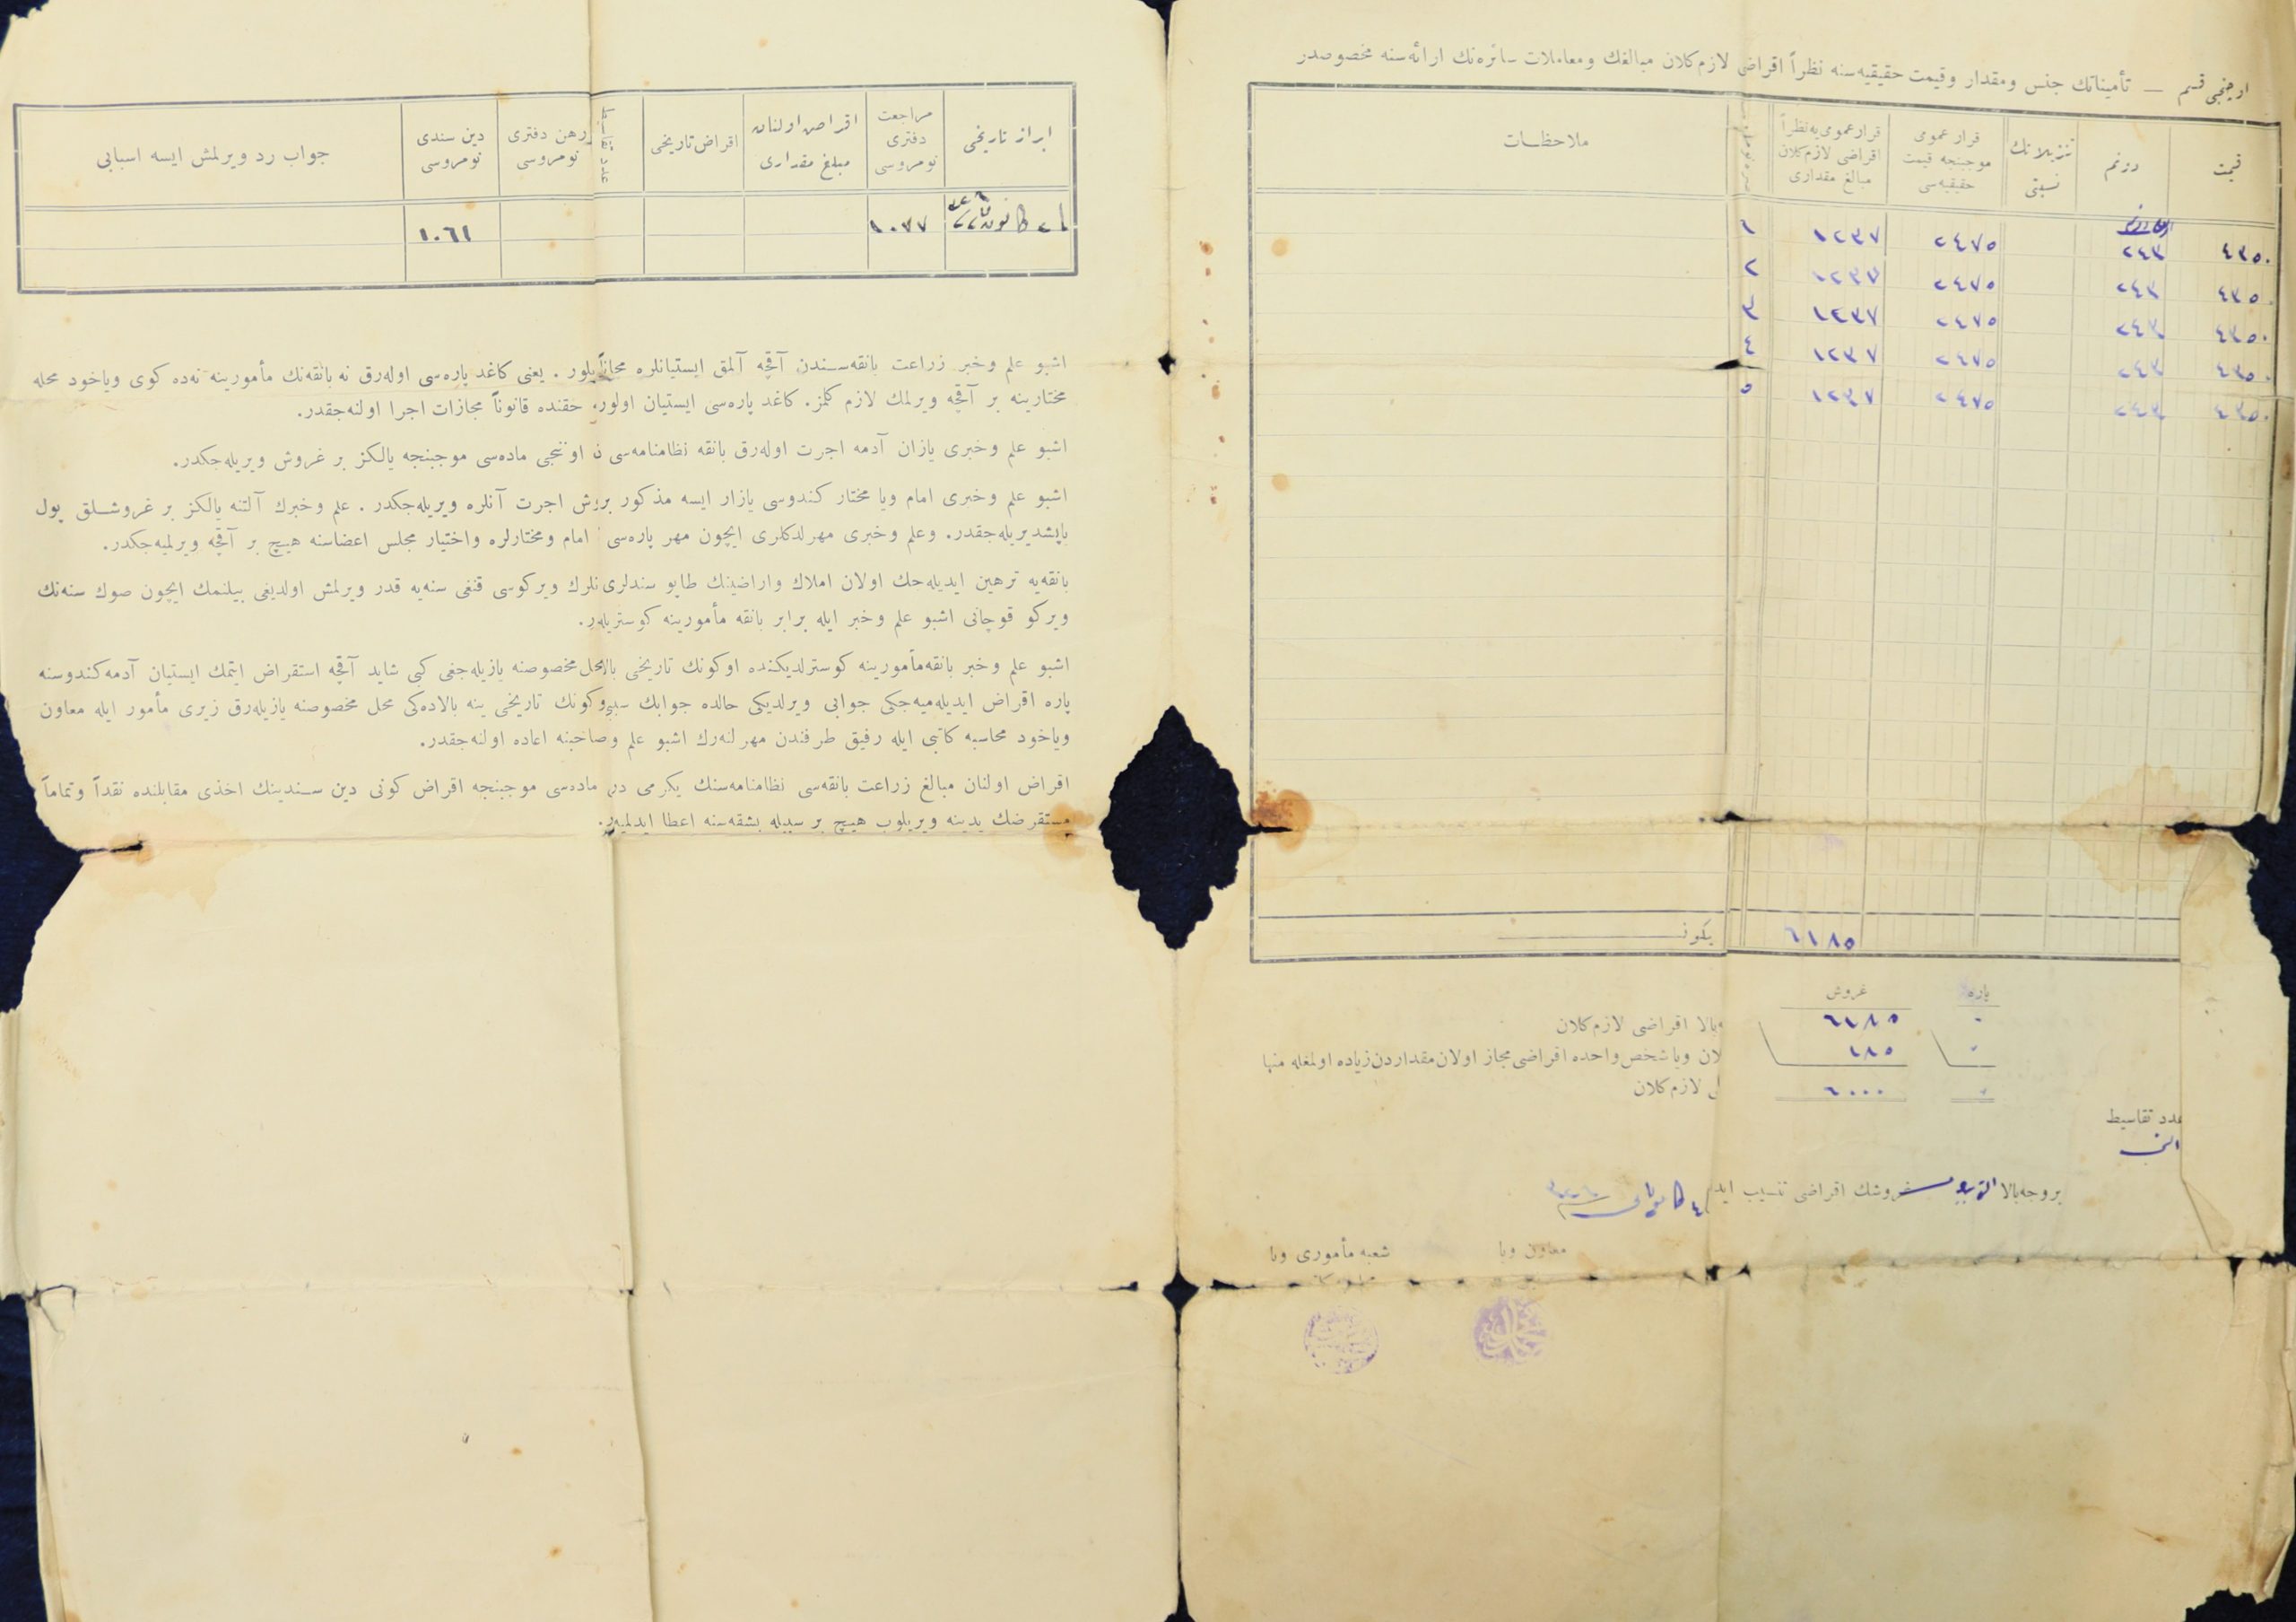 اوچنجی قسم — تأميناتك جنس ومقدار وقيمت حقيقيه‌سنه نظراً اقراضی لازم‌كلان مبالغك ومعاملات سائره‌نك ارائه‌سنه مخصوصدر
قيمت
دونم
تنزيلاتك نسبتی
قرار عمومی موجبنجه قيمت حقيقيه‌سی
قرار عمومی‌يه نظراً اقراضی لازم‌كلان مبالغ مقداری
ملاحظات
٤٣٥٠ ٢٤٣ ٢٤٧٥ ١٢٣٧ ١
٤٣٥٠ ٢٤٣ ٢٤٧٥ ١٢٣٧ ٢
٤٣٥٠ ٢٤٣ ٢٤٧٥ ١٢٣٧ ٣
٤٣٥٠ ٢٤٣ ٢٤٧٥ ١٢٣٧ ٤
٤٣٥٠ ٢٤٣ ٢٤٧٥ ١٢٣٧ ٥
٦١٨٥ يكون
پاره غروش
٠ ٦١٨٥ بالا اقراضی لازم‌كلان
٠ ١٨٥ ويا شخص واحده اقراضی مجاز اولان مقداردن زياده اولمغله منها
٠ ٦٠٠٠ لازم‌كلان
عدد تقاسيط
بروجه‌بالا غروشك اقراضی تنسيب ايدلم
معاون ويا
شعبه مأموری ويا
ابراز تاريخی
مراجعت دفتری نومروسی
اقراض اولنان مبلغ مقداری
اقراض تاريخی
عدد تقاسيط
رهن دفتری نومروسی
دين سندی نومروسی
جواب رد ويرلمش ايسه اسبابی
١٠٣٧ ١٠٦١
اشبو علم وخبر زراعت بانقه‌سندن آقچه آلمق ايستيانلره مجاناً ويريلور . يعنی كاغد پاره‌سی اوله‌رق نه بانقه‌نك مأمورينه نه‌ده كوی وياخود محله
مختارينه بر آقچه ويرلمك لازم كلمز. كاغد پاره‌سی ايستيان اولورسه حقنده قانوناً مجازات اجرا اولنه‌جقدر.
اشبو علم وخبری يازان آدمه اجرت اوله‌رق بانقه نظامنامه‌سی اوننجی ماده‌سی موجبنجه يالكز بر غروش ويريله‌جكدر.
اشبو علم وخبری امام ويا مختار كندوسی يازار ايسه مذكور بر غروش اجرت آنلره ويريله‌جكدر . علم وخبرك آلتنه يالكز بر غروشلق پول
ياپشديريله‌جقدر. وعلم وخبری مهرلدكلری ايچون مهر پاره‌سی امام ومختارلره واختيار مجلس اعضاسنه هيچ بر آقچه ويرلميه‌جكدر.
بانقه‌يه ترهين ايديله‌جك اولان املاك واراضينك طاپو سندلری ويركوسی قنغی سنه‌يه قدر ويرلمش اولديغی بيلنمك ايچون صوك سنه‌نك
ويركو قوچانی اشبو علم وخبر ايله برابر بانقه مأمورينه كوستريله‌جكدر.
اشبو علم وخبر بانقه مأمورينه كوسترلديكنده اوكونك تاريخی بالاده محل مخصوصنه يازيله‌جغی كبی شايد آقچه استقراض ايتمك ايستيان آدمه كندوسنه
پاره اقراض ايديله‌ميه‌جكی جوابی ويرلديكی حالده جوابك سببی واوكونك تاريخی ينه بالاده‌كی محل مخصوصنه يازيله‌رق زيری مأمور ايله معاون
وياخود محاسبه كاتبی ايله رفيق طرفندن مهرلنه‌رك اشبو علم وخبر صاحبنه اعاده اولنه‌جقدر.
اقراض اولنان مبالغ زراعت بانقه‌سی نظامنامه‌سنك يكرمی ماده‌سی موجبنجه اقراض كونی دين سندينك اخذی مقابلنده نقداً وتماماً
مستقرضك يدينه ويريلوب هيچ بر سببله بشقه‌سنه اعطا ايدلميه‌جكدر.